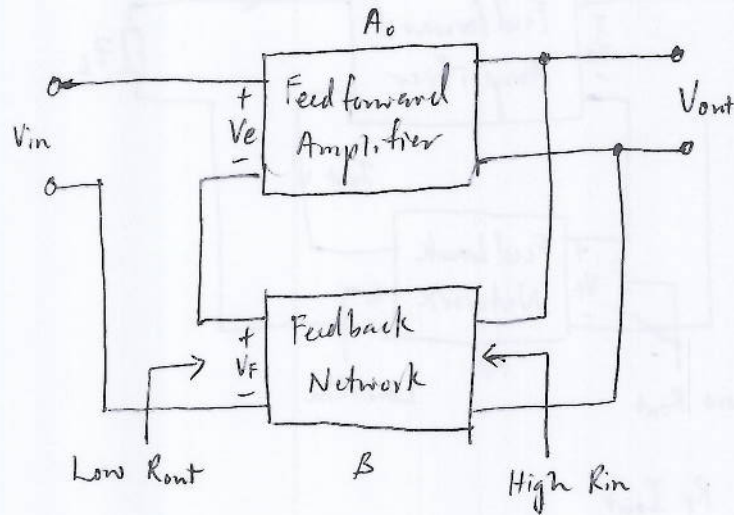 A₀
Feedforward
Amplifier
Vin
+
Ve
-
Vout
Feedback
Network
+
VF
-
Low Rout
β
High Rin